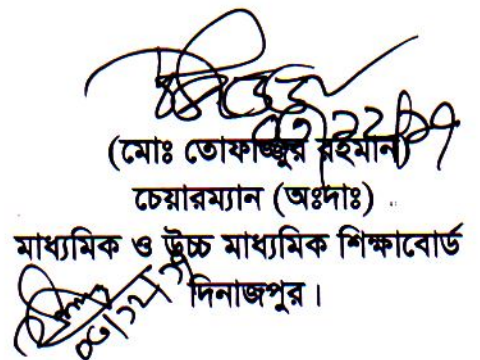 (মোঃ তোফাজ্জুর রহমান)
চেয়ারম্যান (অঃদাঃ)
মাধ্যমিক ও উচ্চ মাধ্যমিক শিক্ষাবোর্ড
দিনাজপুর।